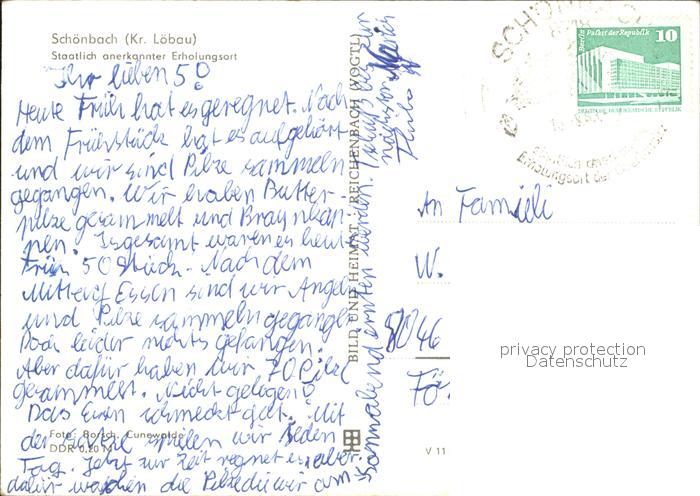 Schönbach (Kr. Löbau)
Staatlich anerkannter Erholungsort
Ihr lieben 5!
Heute Früh hat es geregnet. Nach
dem Frühstück hat es aufgehört
und wir sind Pilze sammeln
gegangen. Wir haben Butter-
pilze gesammelt und Braunkap-
pen. Insgesamt waren es heute
Früh 50 Stück. Nach dem
Mittag Essen sind wir Angel
und Pilze sammeln gegangen
Doch leider nichts gefangen!
Aber dafür haben wir 70 Pilze
gesammelt. Nicht gelogen!
Das Essen schmeckt gut. Mit
der spielen wir jeden
Tag. Jetzt zur Zeit regnet es aber
dafür wachsen die Pilze die wir am
Sonnabend ernten werden. bis zum
nächsten
Foto: Borsch, Cunewalde
DDR 0,20 M
BILD UND HEIMAT REICHENBACH (VOGTL)
V 11
SCHÖNBACH
Staatlich
Erholungsort der
Berlin Palast der Republik
10
DEUTSCHE DEMOKRATISCHE REPUBLIK
An Famieli
W.
8046
privacy protection
Datenschutz